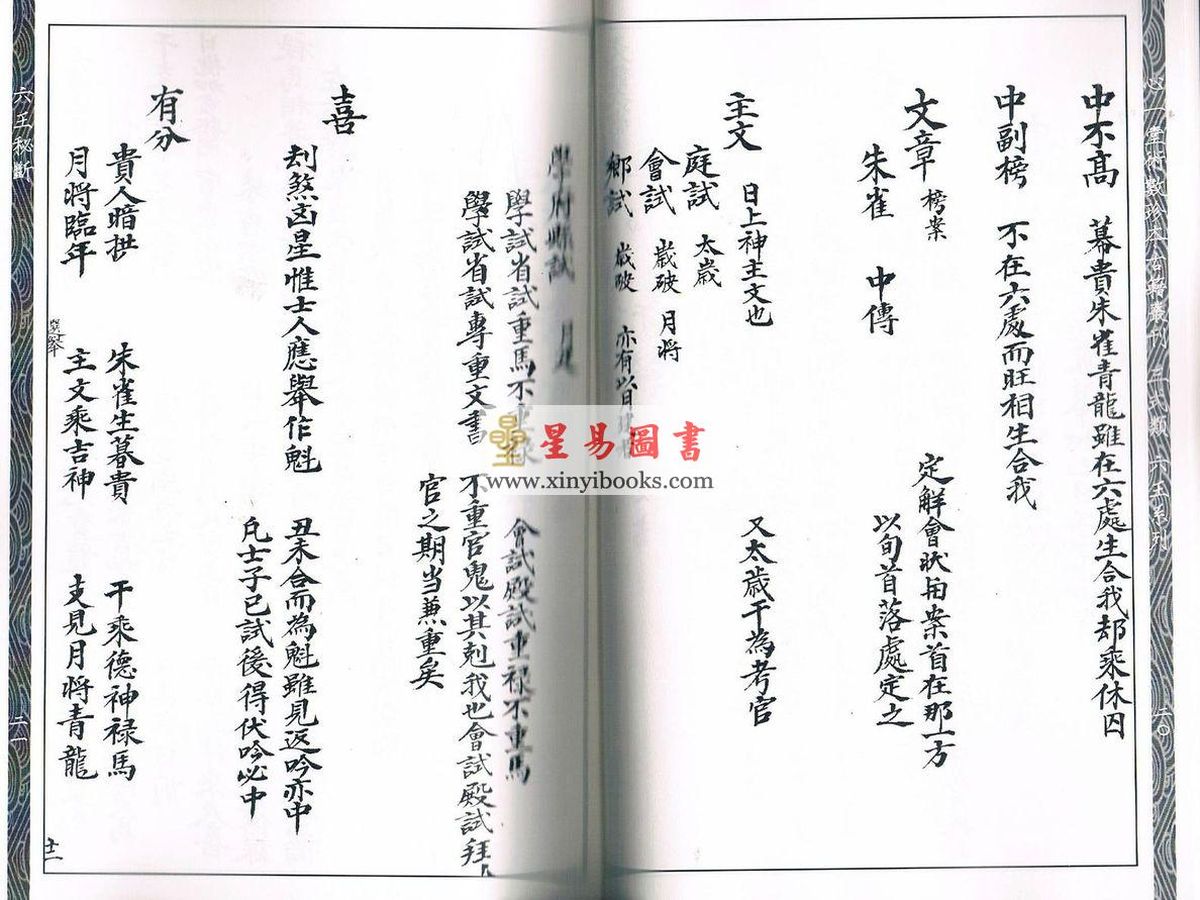 心一堂術數珍本古籍叢刊 三式類 六壬系列
六〇
中不高 幕貴朱雀青龍雖在六處生合我却乘休囚
中副榜 不在六處而旺相生合我
文章 榜案 定解會狀甪案首在那一方
朱雀 中傳 以旬首落處定之
主文 日上神主文也 又太歲干為考官
庭試 太歲
會試 歲破 月將
鄉試 歲破 亦有以月建者
學府縣試 月建
學試省試重馬不重祿 會試殿試重禄不重馬
學試省試專重文書 不重官鬼以其剋我也會試殿試拜
官之期当兼重矣
喜
刦煞凶星惟士人應舉作魁 丑未合而為魁雖見返吟亦中
凡士子已試後得伏吟必中
有分
貴人暗拱 朱雀生暮貴 干乘德神禄馬
月將臨年 主文乘吉神 支見月將青龍
選舉
十二
六壬秘斷
二一
星易圖書
www.xinyibooks.com